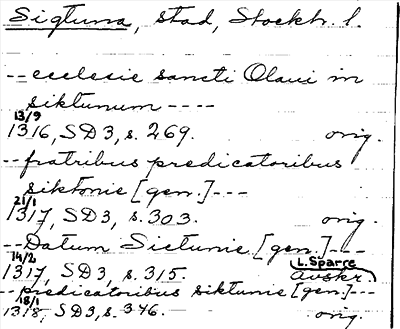 Sigtuna, stad, Stockh. l.
-- ecclesie sancti Olaui in
siktunum ----
13/9
1316, SD3, s. 269. orig.
-- fratribus predicatoribus
siktonie [gen.] ---
21/1
1317, SD3, s. 303. orig.
-- Datum Sictunie [gen.] ---
14/2 L. Sparre
1317, SD3, s. 315. avskr.
-- predicatoribus siktunie [gen.] ---
18/1
1318, SD3, s. 346. orig.